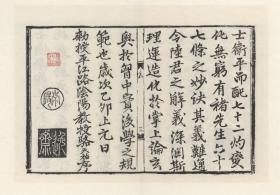 士衛平而配七十二灼變
化無窮有褚先生六十
七條之妙訣其義難通
今陸君之解義深闡斯
理運造化於掌上論玄
奧於胷中實後學之規
範也歲次乙卯上元日
勅授平江路陰陽教授駱序